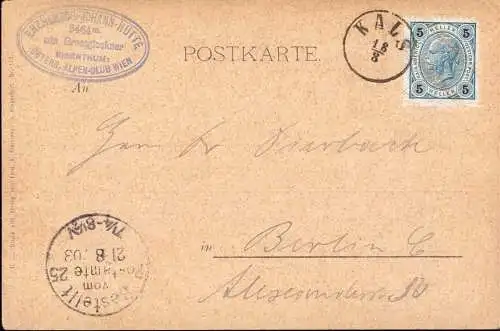 ERZHERZOG-JOHANN-HÜTTE
3464m.
am Grossglockner
EIGENTHUM:
ÖSTERR. ALPEN-CLUB WIEN
POSTKARTE.
KALS
18
8
5 HELLER 5
5 HELLER 5
An
Herrn Dr
in Berlin C
Alexanderstr
Bestellt
vom
Postamte 25
21 8 03
7¼-8½V